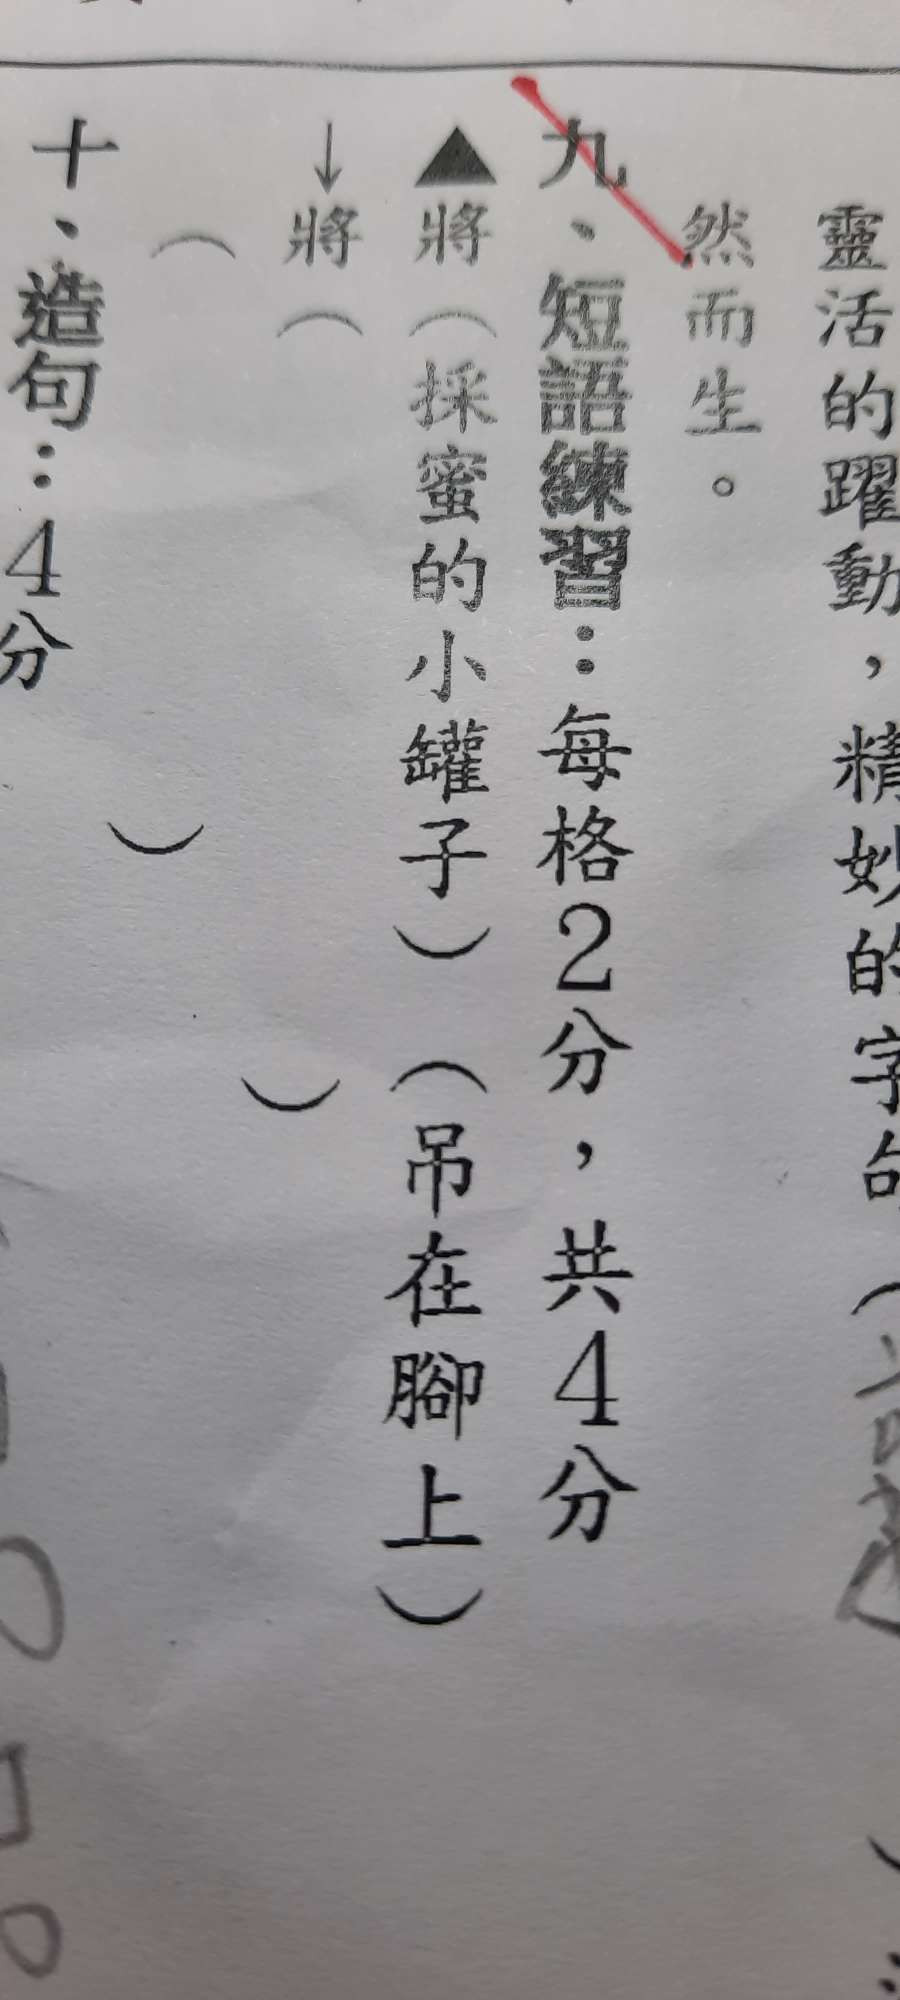 靈活的躍動，精妙的字句（
然而生。
九、短語練習：每格2分，共4分
▲將（採蜜的小罐子）（吊在腳上）
↓將（　　　）
（　　　）
十、造句：4分